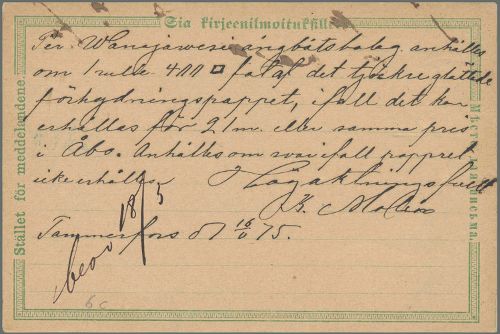 Sia kirjeenilmoituksille.
Stället för meddelandene.
Мѣсто для письма.
Per Wanajawesi ångbåtsbolag anhålles
om 1 rulle 400 □ fot af det
förhydningspappet, ifall det kan
erhållas för 21 m. eller samma pris
i Åbo. Anhålles om svar ifall pappret
icke erhålles
Högaktningsfullt
K. Molin
Tammerfors d 16/5 75.
18/5
6 c